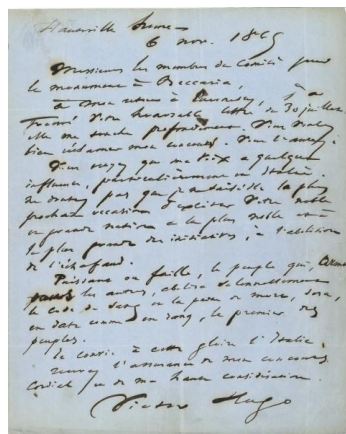 Hauteville house
6 nov. 1865
Messieurs les membres du Comité pour
le monument à Beccaria,
à mon retour à Guernesey, j'ai
trouvé votre honorable lettre du 30 juillet.
elle me touche profondément. Vous voulez
bien réclamer mon concours. Vous l'avez.
Vous croyez que ma voix a quelque
influence, particulièrement en Italie.
ne doutez pas que je ne saisisse la plus
prochaine occasion d'exciter votre noble
et grande nation à la plus noble et à
la plus grande des initiatives, à l'abolition
de l'échafaud.
Puissant ou faible, le peuple qui,
les autres, abolira solennellement
le code du sang et la peine de mort, sera,
en date comme en rang, le premier des
peuples.
Je convie à cette gloire l'Italie.
recevez l'assurance de mon concours
cordial et de ma haute considération.
Victor Hugo